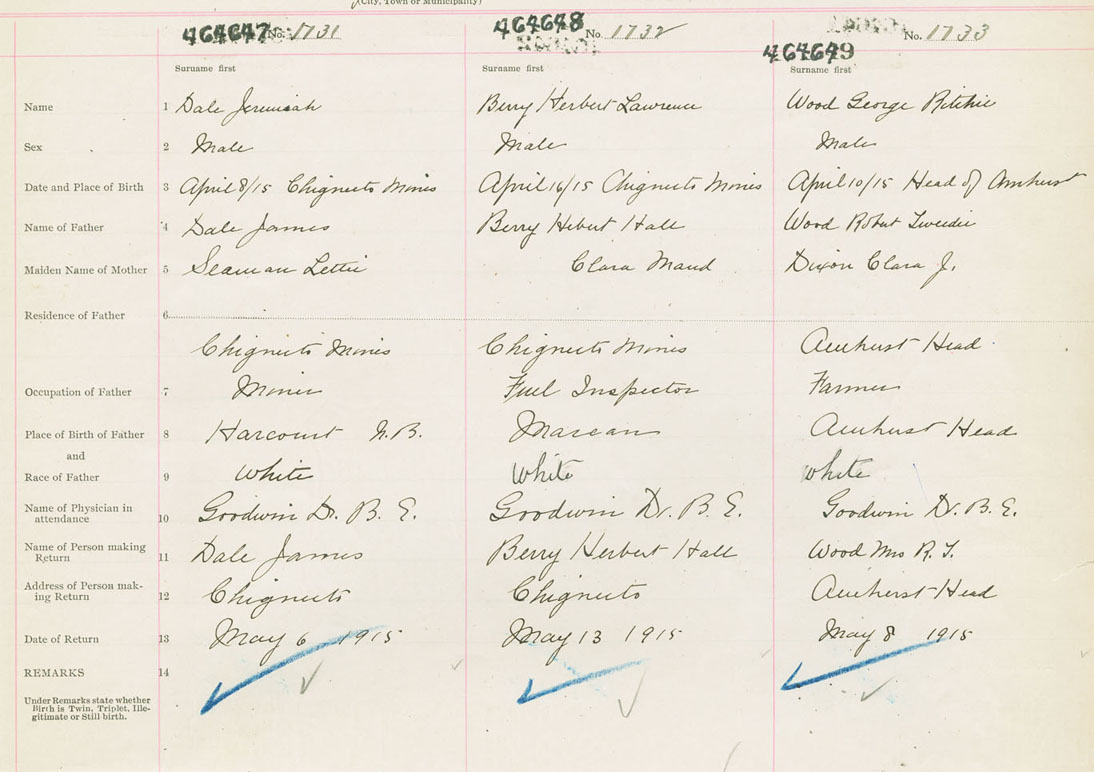 (City, Town or Municipality)
464647 No. 1731 464648 No. 1732 464649 No. 1733
Surname first Surname first Surname first
Name 1 Dale Jeremiah Berry Herbert Lawrence Wood George Ritchie
Sex 2 Male Male Male
Date and Place of Birth 3 April 8/15 Chignecto Mines April 16/15 Chignecto Mines April 10/15 Head of Amherst
Name of Father 4 Dale James Berry Hebert Hall Wood Robert Tweedie
Maiden Name of Mother 5 Seaman Lettie Clara Maud Dixon Clara J.
Residence of Father 6
Chignecto Mines Chignecto Mines Amherst Head
Occupation of Father 7 Miner Fuel Inspector Farmer
Place of Birth of Father 8 Harcourt N.B. Maccan Amherst Head
and
Race of Father 9 White White White
Name of Physician in
attendance 10 Goodwin Dr. B. E. Goodwin Dr. B. E. Goodwin Dr. B. E.
Name of Person making
Return 11 Dale James Berry Herbert Hall Wood Mrs R. T.
Address of Person mak-
ing Return 12 Chignecto Chignecto Amherst Head
Date of Return 13 May 6 1915 May 13 1915 May 8 1915
REMARKS 14
Under Remarks state whether
Birth is Twin, Triplet, Ille-
gitimate or Still birth.